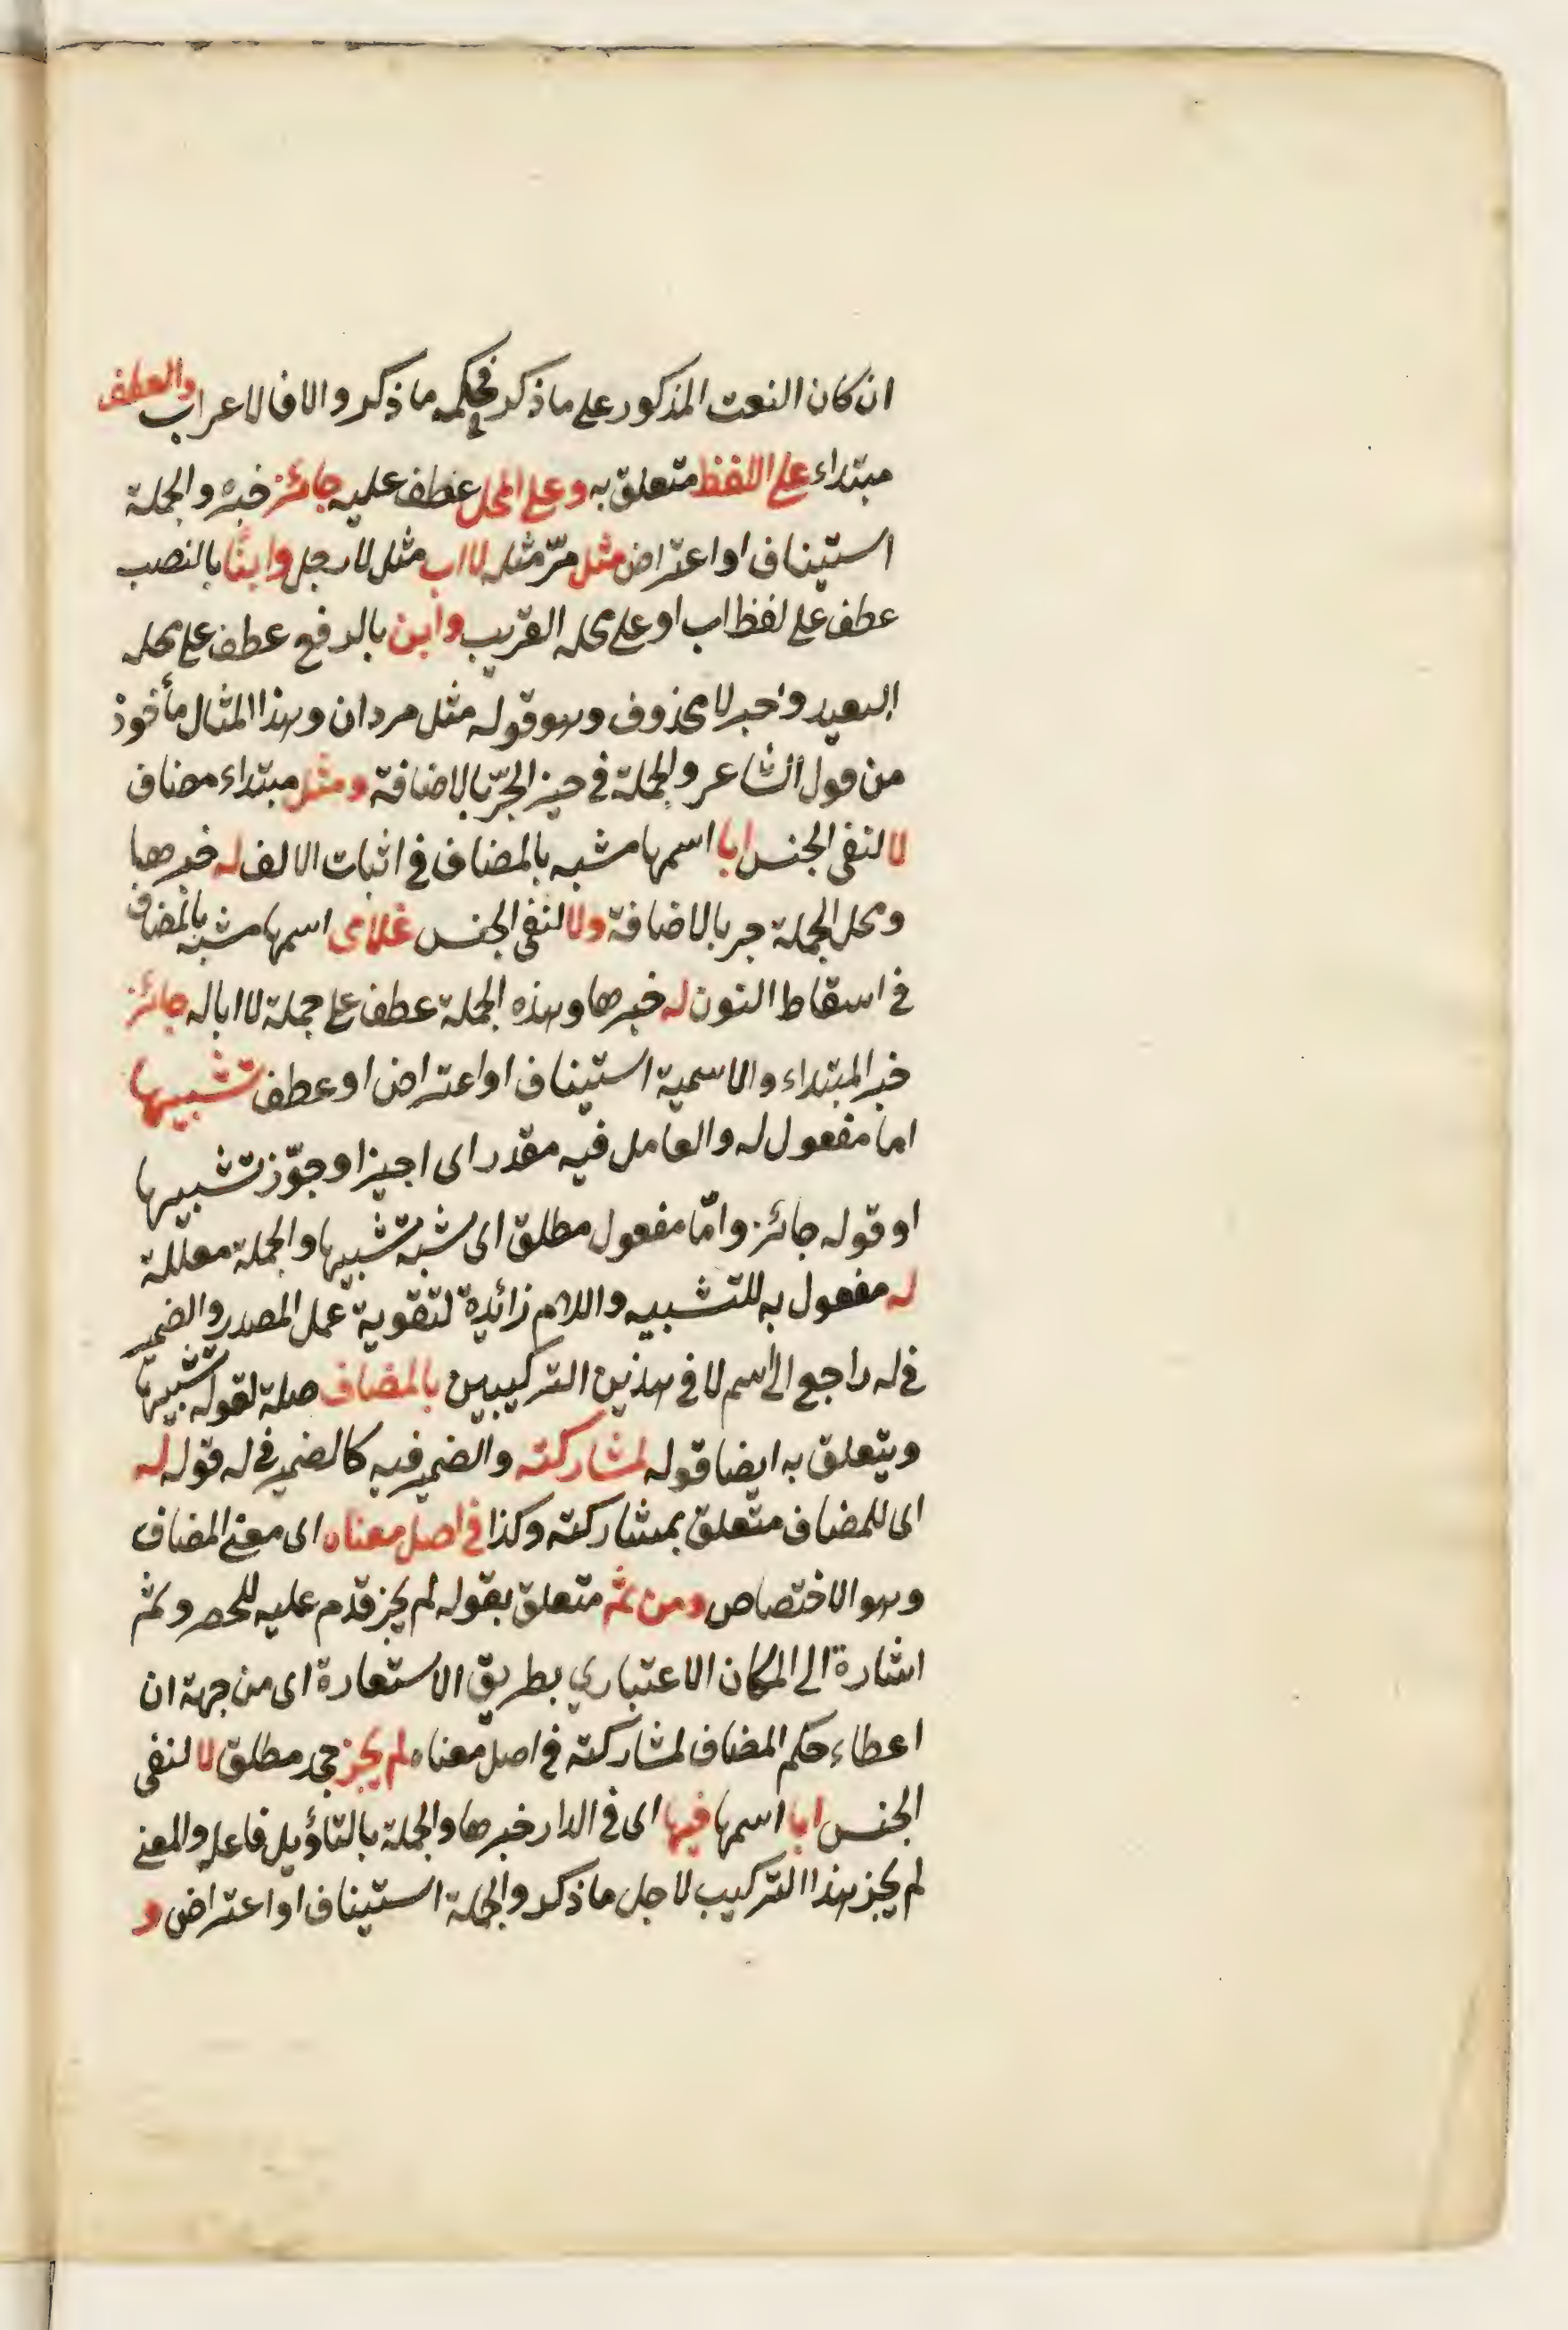 ان كان النعت المذكور على ما ذكر فحكمه ما ذكر والا فالاعراب والعطف
مبتداء على اللفظ متعلق به وعلى المحل عطف عليه جائز خبره والجملة
استيناف او اعتراض مثل مرّ مثله لا اب مثل لا رجل وابنًا بالنصب
عطف على لفظ اب او على محله القريب وابن بالرفع عطف على محله
البعيد وخبر لا محذوف وهو قوله مثل مروان وهذا المثال مأخوذ
من قول الشاعر والجملة في حيز الجرّ بالاضافة ومثل مبتداء مضاف
لا لنفى الجنس ابا اسمها مشبه بالمضاف في اثبات الالف له خبرها
ومحل الجملة جر بالاضافة ولا لنفى الجنس غلامى اسمها مشبه بالمضاف
في اسقاط النون له خبرها وهذه الجملة عطف على جملة لا ابا له جائز
خبر المبتداء والاسمية استيناف او اعتراض او عطف تشبيها
اما مفعول له والعامل فيه مقدر اى اجيز او جوّز تشبيها
او قوله جائز وامّا مفعول مطلق اى شبه تشبيها والجملة معللة
له مفعول به للتشبيه واللام زائدة لتقوية عمل المصدر والضمير
في له راجع الى اسم لا في هذين التركيبين بالمضاف صلة لقوله تشبيها
ويتعلق به ايضا قوله لمشاركته والضمير فيه كالضمير في له قوله له
اى للمضاف متعلق بمشاركته وكذا في اصل معناه اى معنى المضاف
وهو الاختصاص ومن ثم متعلق بقوله لم يجز قدم عليه للحصر وثم
اشارة الى المكان الاعتباري بطريق الاستعارة اى من جهة ان
اعطاء حكم المضاف لمشاركته في اصل معناه لم يجز جحد مطلق لا لنفى
الجنس ابا اسمها فيها اى في الدار خبرها والجملة بالتأويل فاعله والمعنى
لم يجز هذا التركيب لاجل ما ذكر والجملة استيناف او اعتراض و